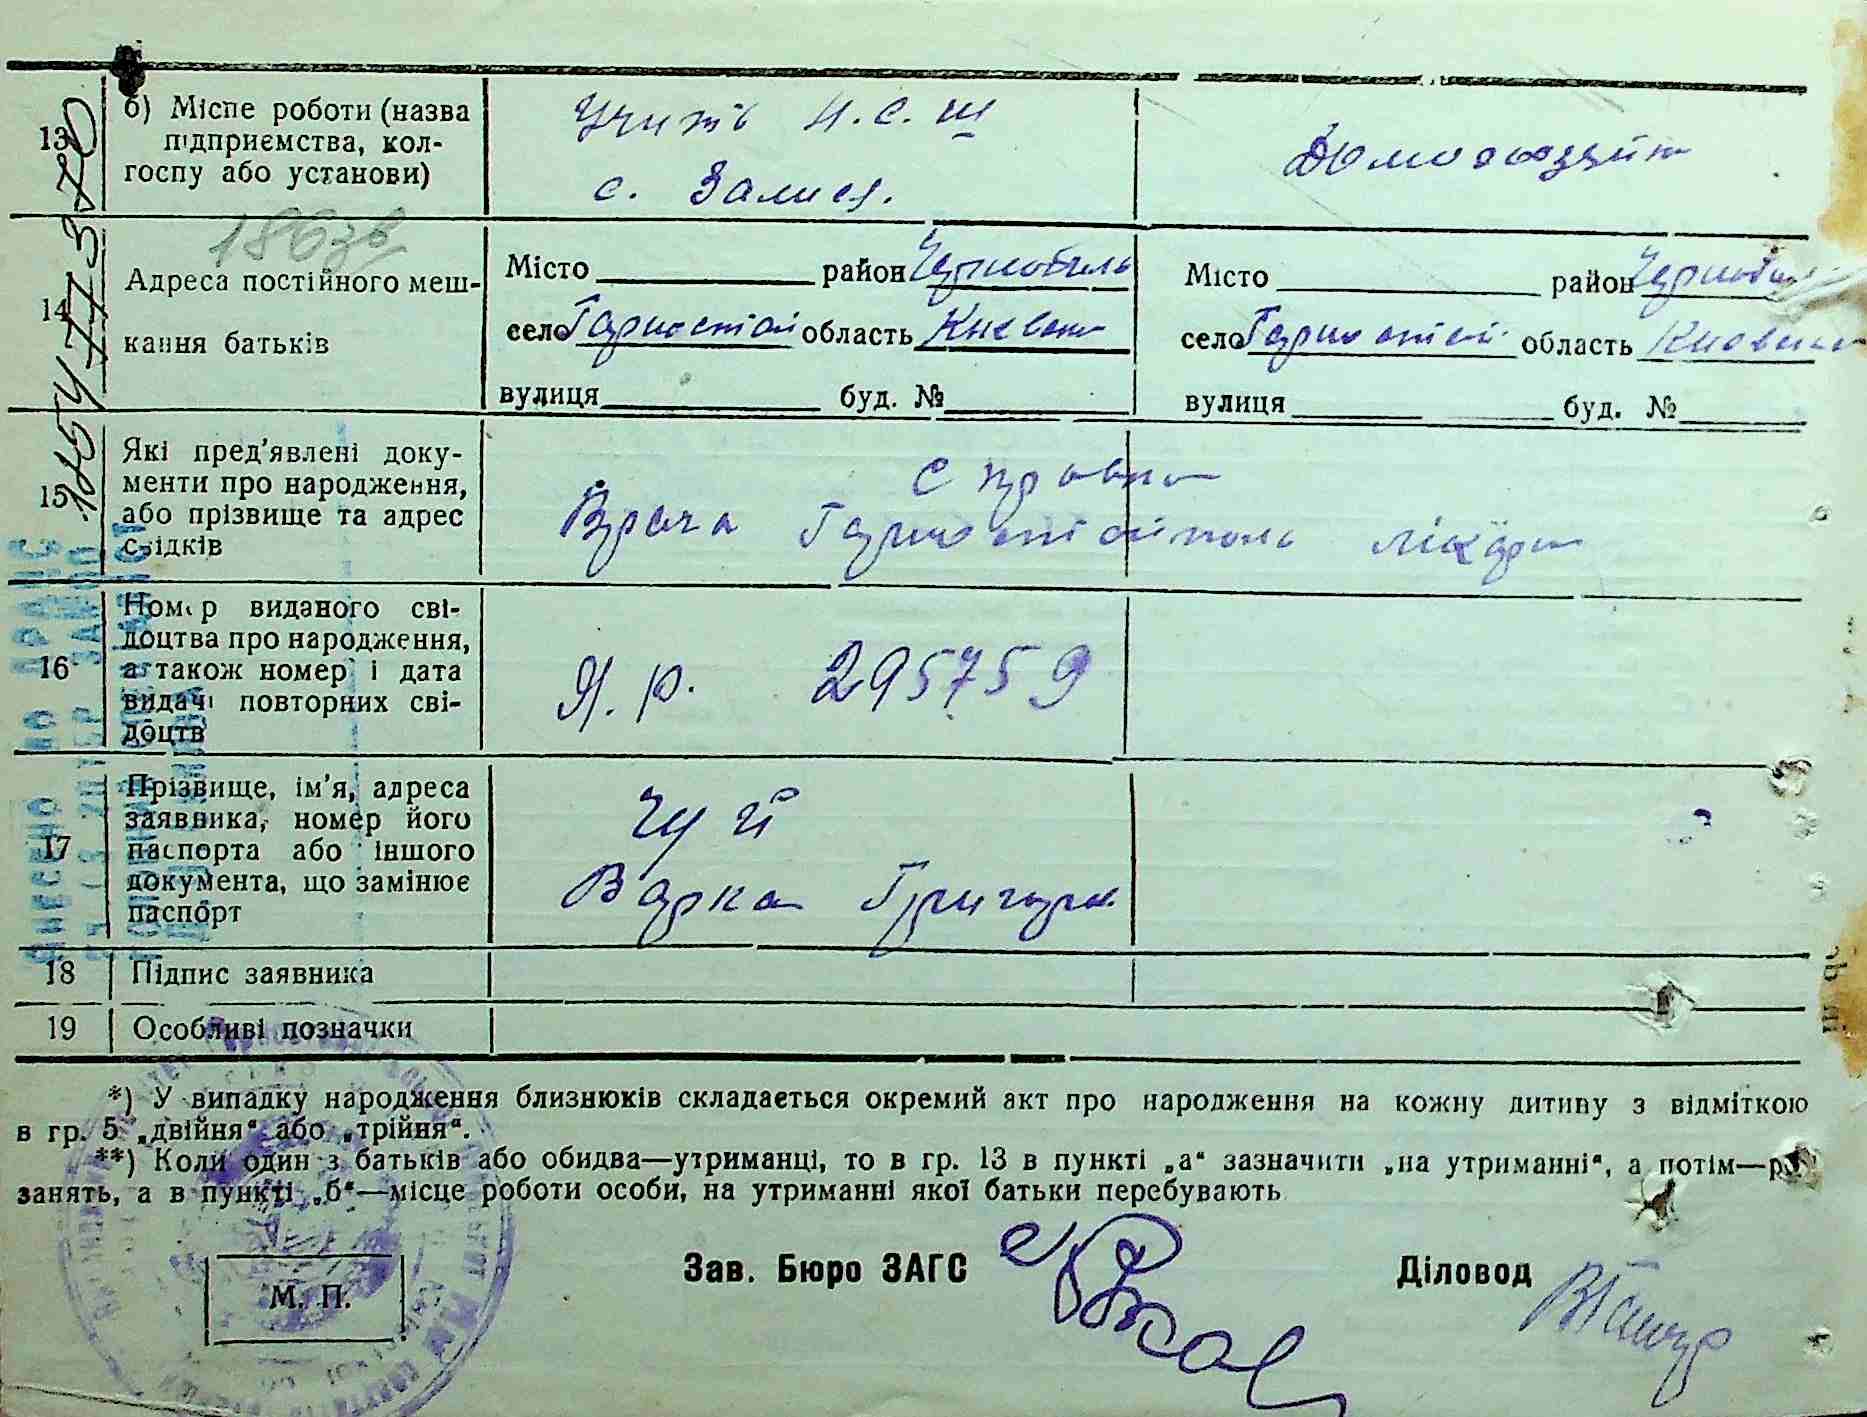 13
б) Місце роботи (назва
підприємства, кол-
госпу або установи)
Учит Н.С.Ш
с. Залися.
Домохозяйк
14
Адреса постійного меш-
кання батьків
Місто район Чернобиль
село Гарностай область Києвск
вулиця буд. №
Місто район Чернобил
село Гарностай область Києвск
вулиця буд. №
15
Які пред'явлені доку-
менти про народження,
або прізвище та адрес
свідків
Справка
Врача Гарностайполь лікарн
16
Номер виданого сві-
доцтва про народження,
а також номер і дата
видачі повторних сві-
доцтв
Я.р. 295759
17
Прізвище, ім'я, адреса
заявника, номер його
паспорта або іншого
документа, що замінює
паспорт
Чуй
Варка Григор
18
Підпис заявника
19
Особливі позначки
*) У випадку народження близнюків складається окремий акт про народження на кожну дитину з відміткою
в гр. 5 „двійня" або „трійня".
**) Коли один з батьків або обидва—утриманці, то в гр. 13 в пункті „а" зазначити „на утриманні", а потім—р
занять, а в пункті „б"—місце роботи особи, на утриманні якої батьки перебувають
М. П.
Зав. Бюро ЗАГС
Діловод